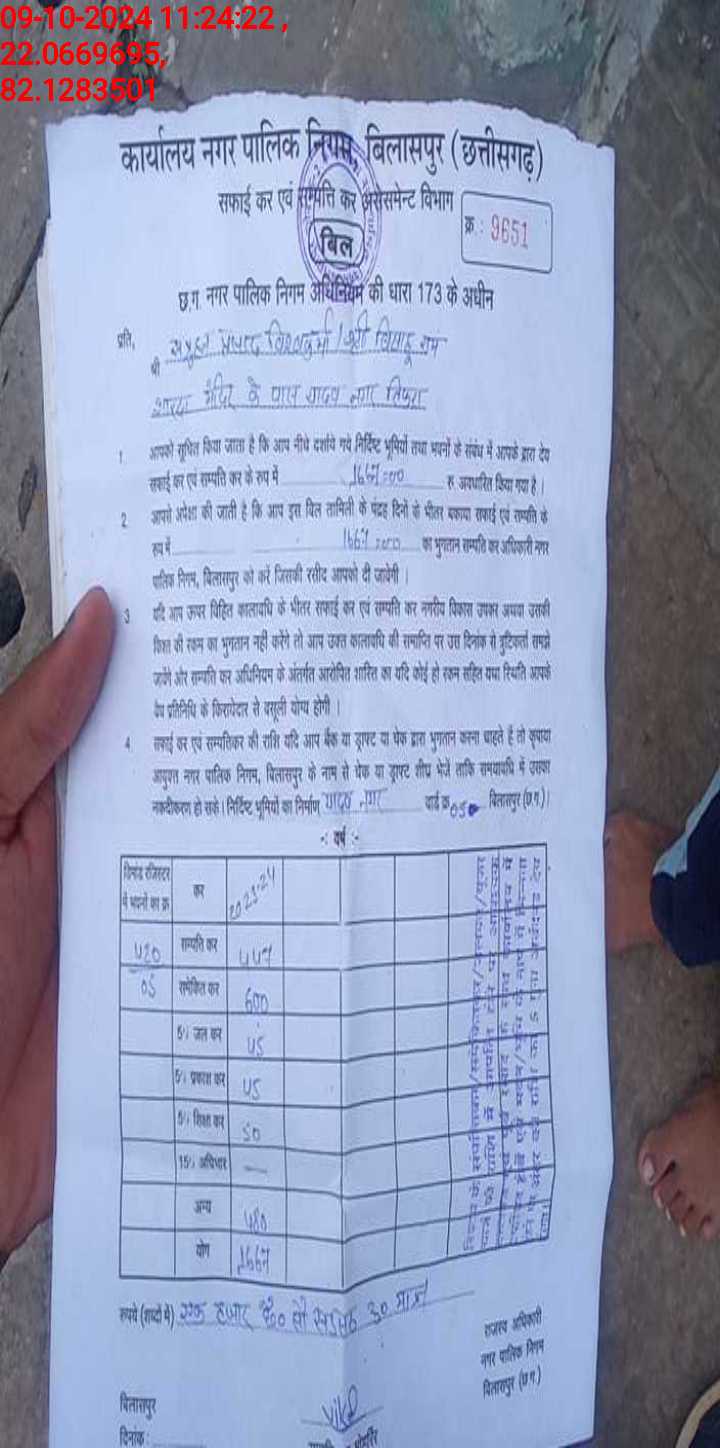 09-10-2024 11:24:22 ,
22.0669695,
82.1283501
कार्यालय नगर पालिक निगम, बिलासपुर (छत्तीसगढ़)
सफाई कर एवं सम्पत्ति कर असेसमेन्ट विभाग
बिल
क्र : 9651
छ.ग. नगर पालिक निगम अधिनियम की धारा 173 के अधीन
प्रति,
श्री प्रसाद विश्वकर्मा / श्री
शारदा मंदिर के पास यादव नगर तिफरा
1. आपको सूचित किया जाता है कि आप नीचे दर्शाये गये निर्दिष्ट भूमियों तथा भवनों के संबंध में आपके द्वारा देय
सफाई कर एवं सम्पत्ति कर के रुप में 1667=00 रु अवधारित किया गया है।
2. आपसे अपेक्षा की जाती है कि आप इस बिल तामिली के पंद्रह दिनों के भीतर बकाया सफाई एवं सम्पत्ति के
रुप में 1667=00 का भुगतान सम्पत्ति कर अधिकारी नगर
पालिक निगम, बिलासपुर को करें जिसकी रसीद आपको दी जावेगी।
3 यदि आप ऊपर विहित कालावधि के भीतर सफाई कर एवं सम्पति कर नगरीय विकास उपकर अथवा उसकी
किश्त की रकम का भुगतान नही करेंगे तो आप उक्त कालावधि की समाप्ति पर उस दिनांक से त्रुटिकर्ता समझे
जावेंगे और सम्पति कर अधिनियम के अंतर्गत आरोपित शास्ति का यदि कोई हो रकम सहित यथा स्थिति आपके
वैध प्रतिनिधि के किरायेदार से वसूली योग्य होगी।
4. सफाई कर एवं सम्पतिकर की राशि यदि आप बैंक या ड्राफ्ट या चेक द्वारा भुगतान करना चाहते हैं तो कृपया
आयुक्त नगर पालिक निगम, बिलासपुर के नाम से चेक या ड्राफ्ट शीघ्र भेजें ताकि समयावधि में उसका
नकदीकरण हो सके। निर्दिष्ट भूमियों का निर्माण यादव नगर वार्ड क्र 05 बिलासपुर (छ.ग.)।
-: वर्ष :-
डिमांड रजिस्टर में भवनों का क्र कर 2023-24
420 सम्पति कर 447
05 समेकित कर 600
5% जल कर 45
5% प्रकाश कर 45
5% शिक्षा कर 50
15% अधिभार —
अन्य 480
योग 1667
रुपये (शब्दों में) एक हजार छः सौ सड़सठ रु० मात्र
राजस्व अधिकारी
नगर पालिक निगम
बिलासपुर (छ.ग.)
बिलासपुर
दिनांक :